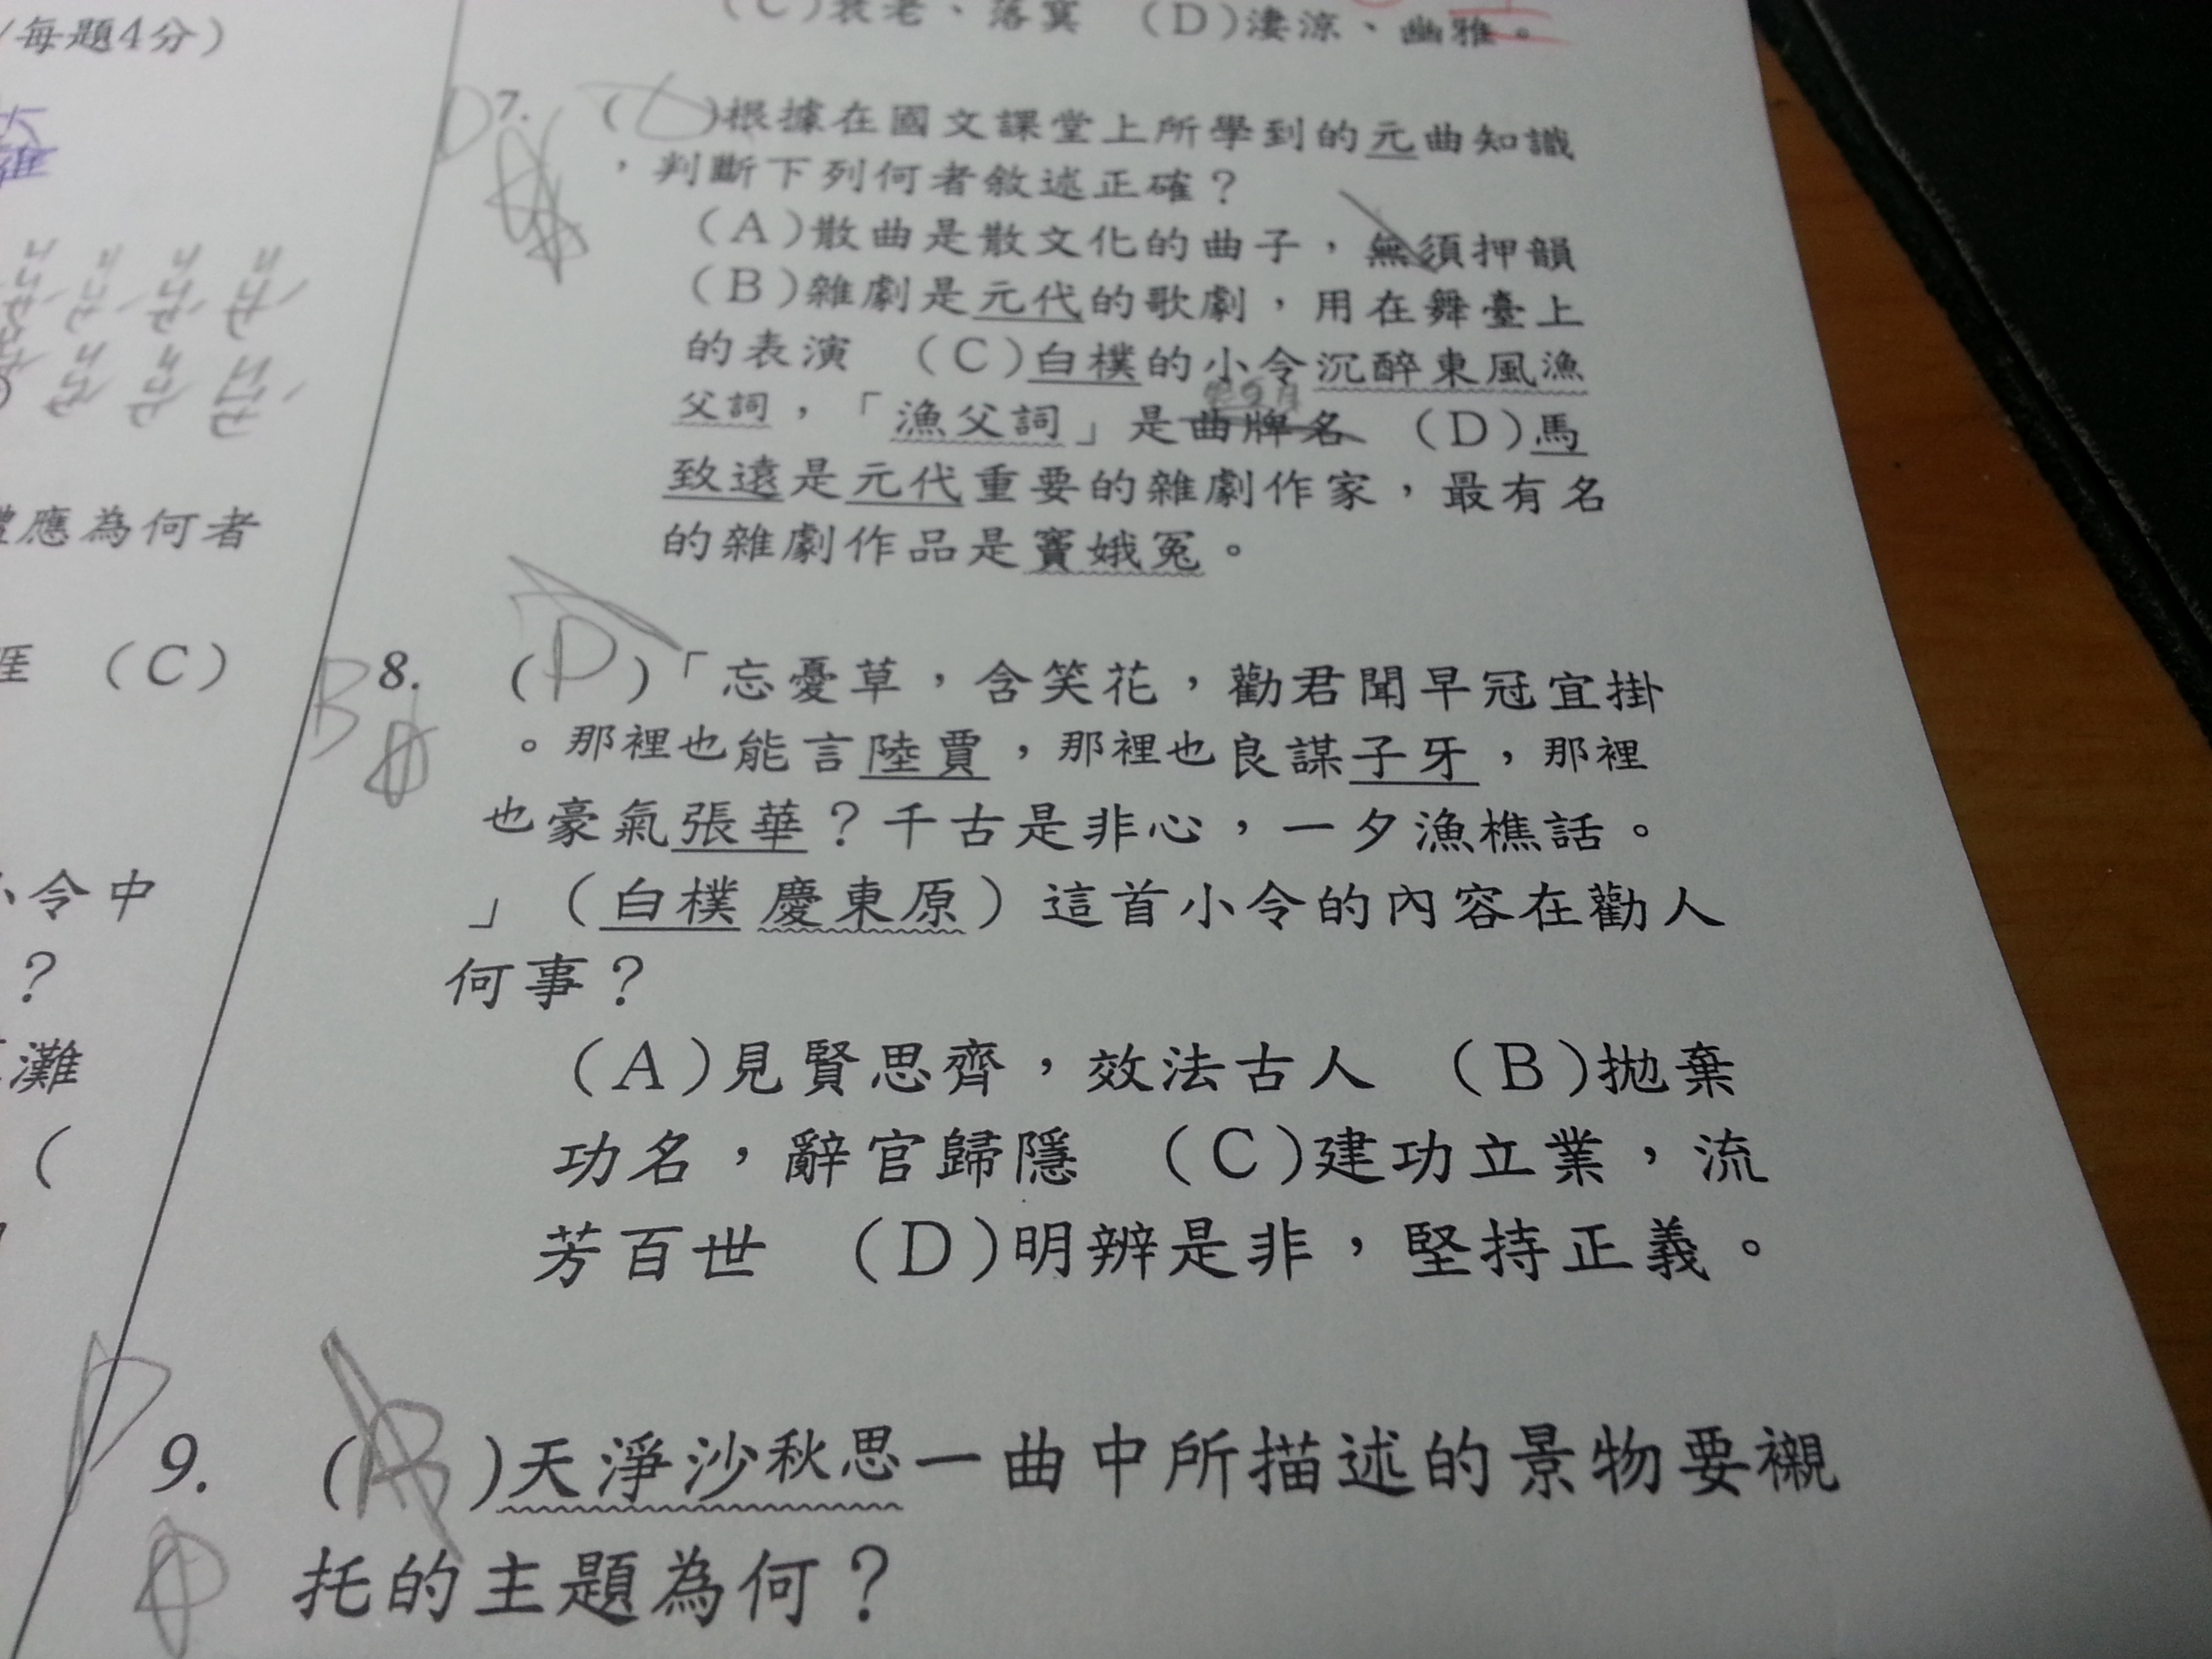 （每題4分）
應為何者
（C）
令中
？
灘
（
（C）衰老、落寞 （D）淒涼、幽雅。
D 7. （ ）根據在國文課堂上所學到的元曲知識
，判斷下列何者敘述正確？
（A）散曲是散文化的曲子，無須押韻
（B）雜劇是元代的歌劇，用在舞臺上
的表演 （C）白樸的小令沉醉東風漁
父詞，「漁父詞」是曲牌名 （D）馬
致遠是元代重要的雜劇作家，最有名
的雜劇作品是竇娥冤。
B 8. （D）「忘憂草，含笑花，勸君聞早冠宜掛
。那裡也能言陸賈，那裡也良謀子牙，那裡
也豪氣張華？千古是非心，一夕漁樵話。
」（白樸 慶東原）這首小令的內容在勸人
何事？
（A）見賢思齊，效法古人 （B）拋棄
功名，辭官歸隱 （C）建功立業，流
芳百世 （D）明辨是非，堅持正義。
D 9. （B）天淨沙秋思一曲中所描述的景物要襯
托的主題為何？